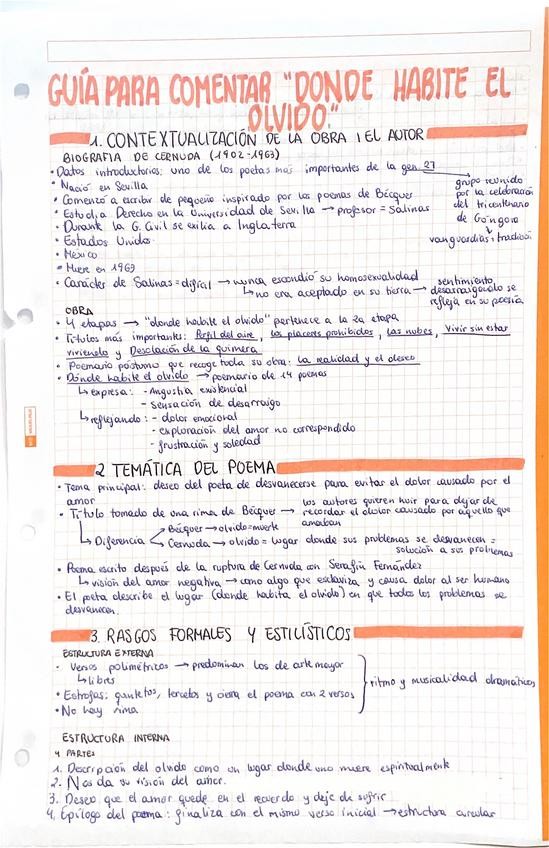 GUÍA PARA COMENTAR "DONDE HABITE EL
OLVIDO"
1. CONTEXTUALIZACIÓN DE LA OBRA I EL AUTOR
BIOGRAFIA DE CERNUDA (1902-1963)
• Datos introductorios: uno de los poetas más importantes de la gen. 27
grupo reunido
por la celebración
del tricentenario
de Góngora
vanguardias i tradición
• Nació en Sevilla
• Comenzó a escribir de pequeño inspirado por los poemas de Bécquer
• Estudia Derecho en la Universidad de Sevilla → profesor = Salinas
• Durante la G. Civil se exilia a Inglaterra
• Estados Unidos
• México
• Muere en 1963
• Carácter de Salinas = difícil → nunca escondió su homosexualidad
↳ no era aceptado en su tierra → sentimiento
desarraigado se
refleja en su poesía
OBRA
• 4 etapas → "donde habite el olvido" pertenece a la 2a etapa
• Títulos más importantes: Perfil del aire, los placeres prohibidos, las nubes, Vivir sin estar
viviendo y Desolación de la quimera
• Poemario póstumo que recoge toda su obra: la realidad y el deseo
• Donde habite el olvido → poemario de 14 poemas
↳ expresa: - Angustia existencial
- Sensación de desarraigo
↳ reflejando: - dolor emocional
- exploración del amor no correspondido
- frustración y soledad
2 TEMÁTICA DEL POEMA
• Tema principal: deseo del poeta de desvanecerse para evitar el dolor causado por el
amor
• Título tomado de una rima de Bécquer → los autores quieren huir para dejar de
recordar el dolor causado por aquello que
amaban
↳ Diferencia
Bécquer → olvido = muerte
Cernuda → olvido = lugar donde sus problemas se desvanecen =
solución a sus problemas
• Poema escrito después de la ruptura de Cernuda con Serafín Fernández
↳ visión del amor negativa → como algo que esclaviza y causa dolor al ser humano
• El poeta describe el lugar (donde habita el olvido) en que todos los problemas se
desvanecen.
3. RASGOS FORMALES Y ESTILÍSTICOS
ESTRUCTURA EXTERNA
• Versos polimétricos → predominan los de arte mayor
↳ libres
• Estrofas: quintetos, tercetos y cierra el poema con 2 versos
• No hay rima
ritmo y musicalidad dramáticos
ESTRUCTURA INTERNA
4 PARTES
1. Descripción del olvido como un lugar donde uno muere espiritualmente
2. Nos da su visión del amor.
3. Deseo que el amor quede en el recuerdo y deje de sufrir
4. Epílogo del poema: finaliza con el mismo verso inicial → estructura circular